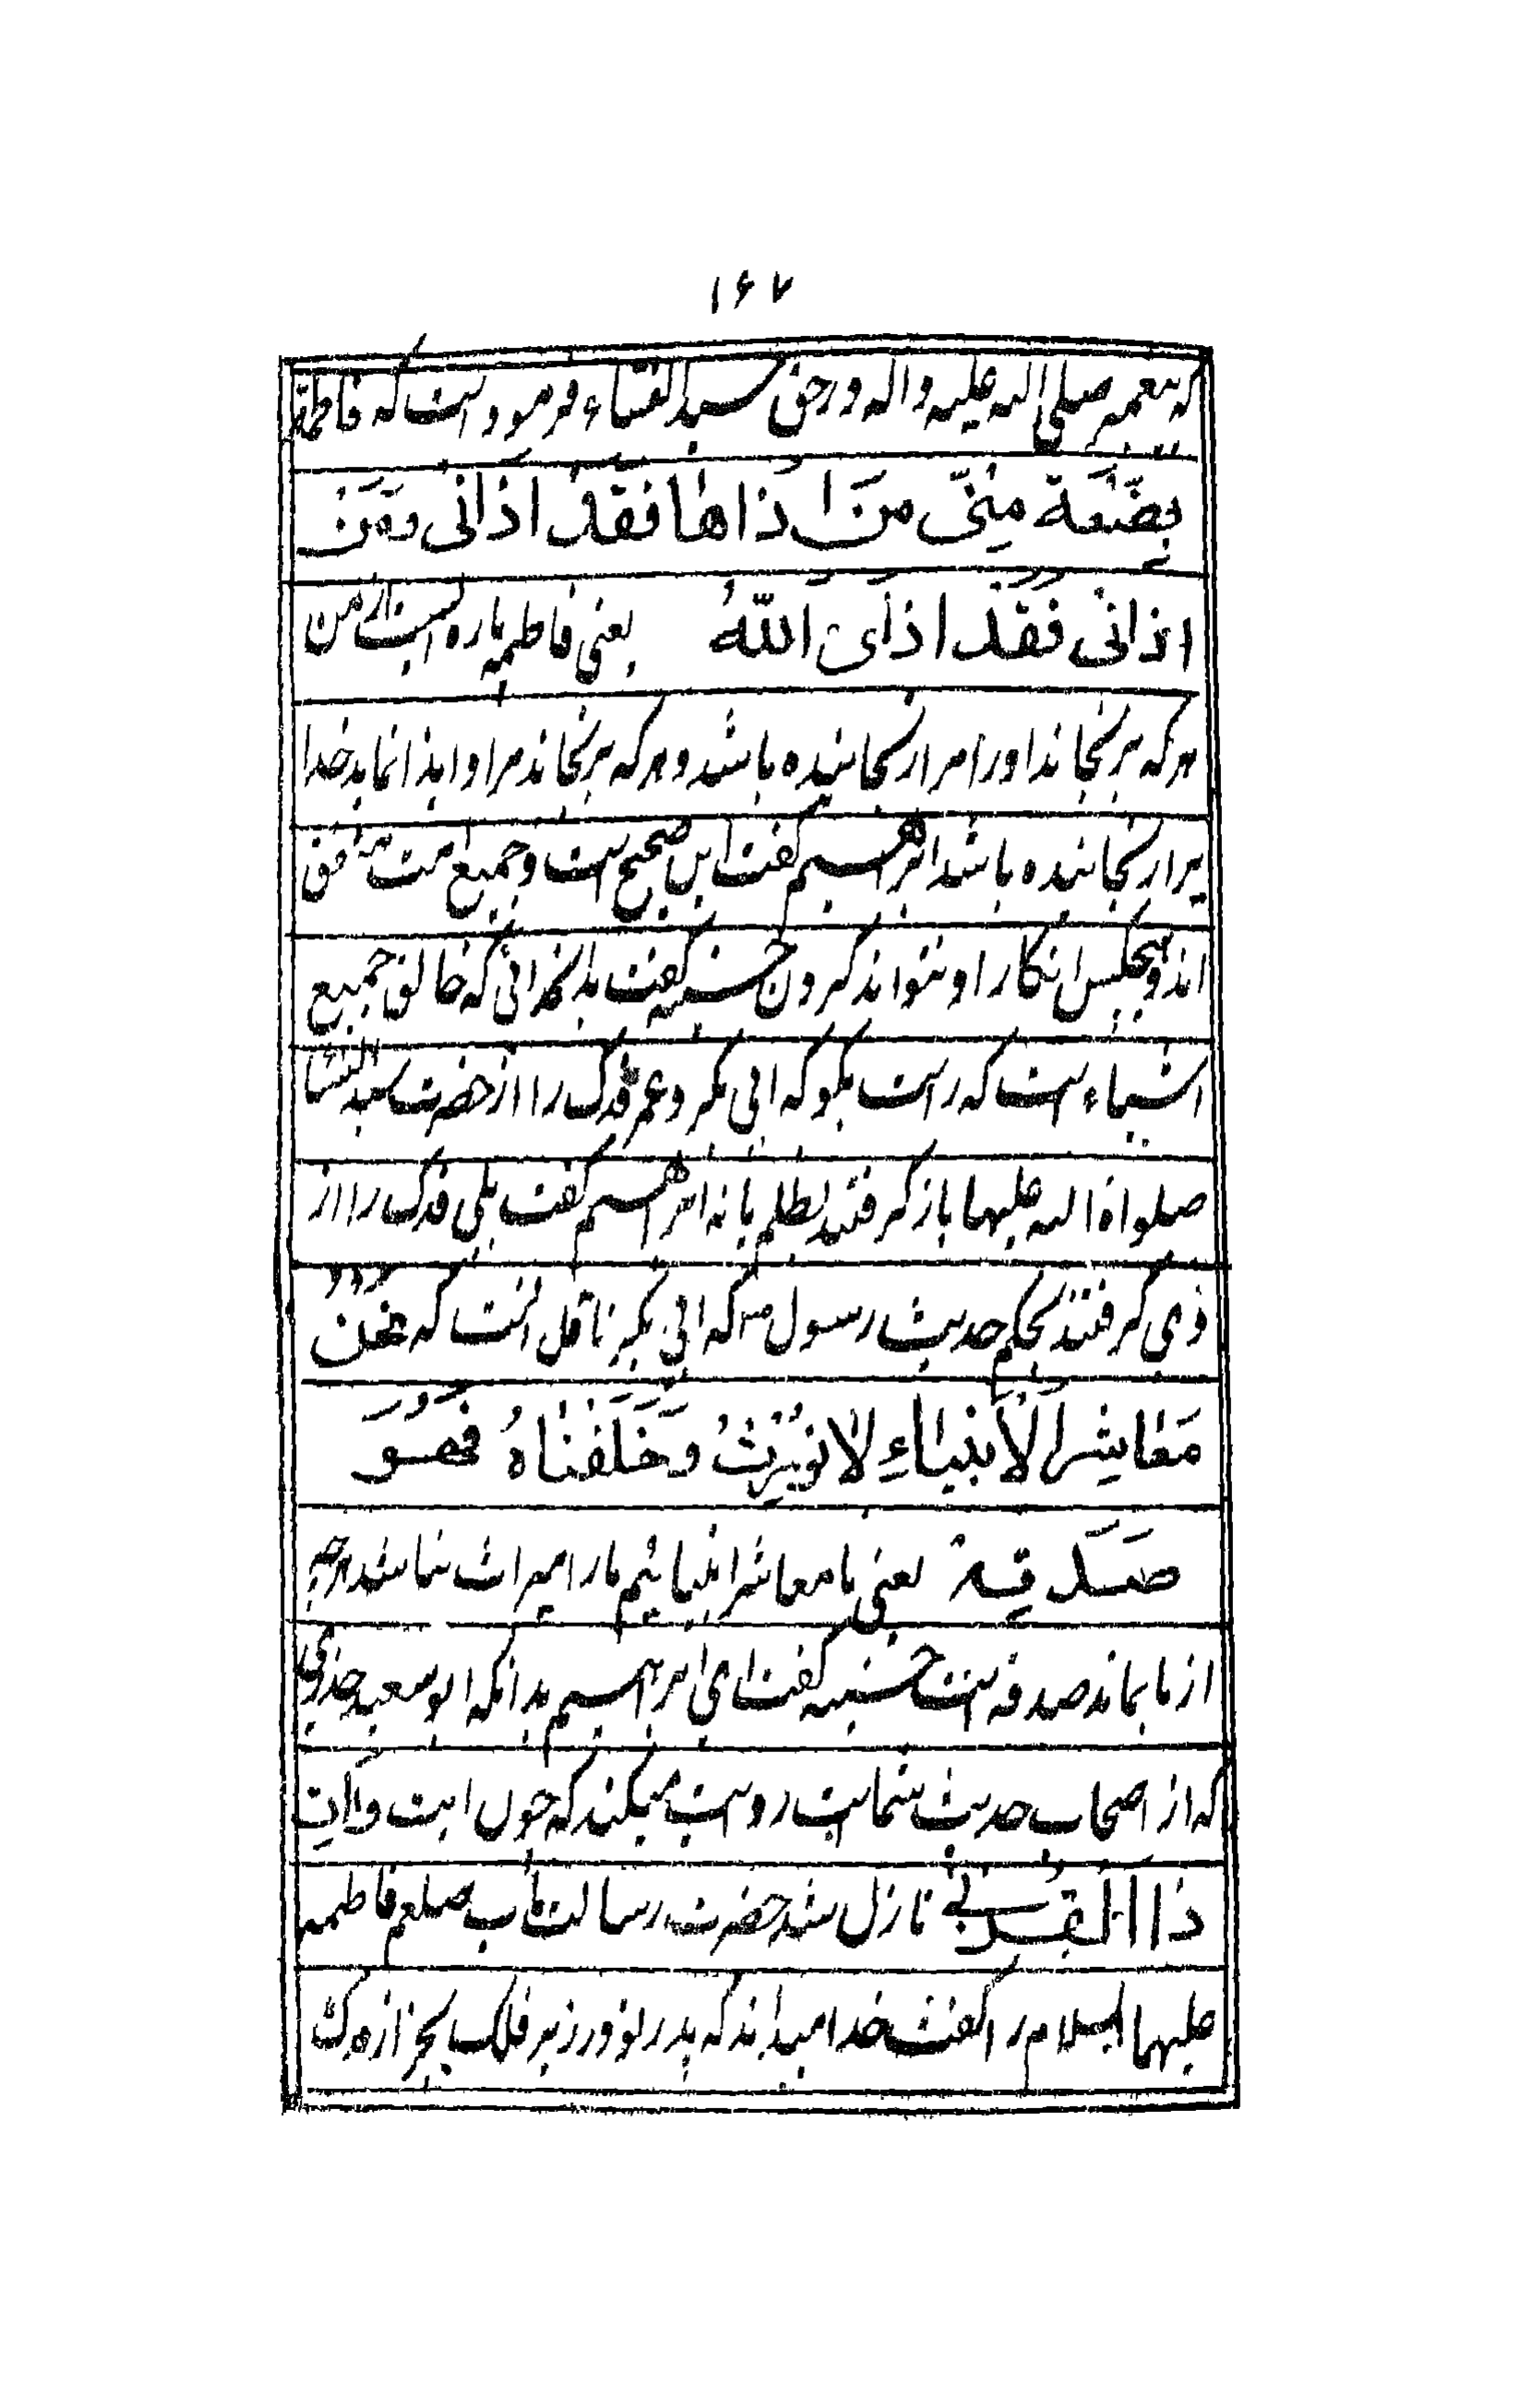 ۱۶۷
که پیغمبر صلی الله علیه واله در حق سیدالنساء فرموده است که فاطمة
بِضْعَة مِنّی مَن اَذاها فَقَدْ اذانی وَمَن
اذانی فَقَدْ اذَی اَللّهُ یعنی فاطمه پاره ایست از من
هرکه برنجاند او را مرا رنجانیده باشد و هرکه برنجاند مرا و ایذا نماید خدا
یرا رنجانیده باشد ابرهیم گفت این صحیح است و جمیع امت متفق
اند و هیچکس انکار او نتواند کردن حسنیه گفت بدان خدائی که خالق جمیع
اشیاء است که راست بگو که ابی بکر و عمر فدک را از حضرت سیدالنسا
صلواة الله علیهما باز گرفتند بظلم یا نه ابرهیم گفت بلی فدک را از
وی گرفتند بحکم حدیث رسول ص که ابی بکر ناقل انست که نَحْنُ
مَعٰاشِرَ اَلْاَنْبیٰاءِ لاٰنُوَرِّثُ وَخَلَّفْنٰاهُ فَهُوَ
صَدَقة یعنی ما معاشر انبیائیم ما را میراث نباشد هرچه
از ما بماند صدقه است حسنیه گفت ای ابرهیم بدانکه ابو سعید خدری
که از اصحاب حدیث شماست روایت میکند که چون ایت وَآتِ
ذَا الْقُربیٰ نازل شد حضرت رسالت مآب صلعم فاطمه
علیهما السلام را گفت خدا میداند که پدر تو در زیر فلک بجز از فدک